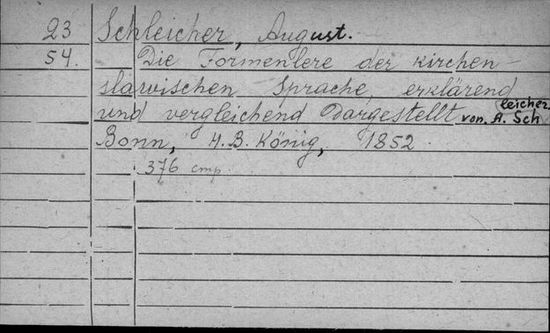 23 Schleicher, August.
54. Die Formenlere der kirchen-
slawischen Sprache, erklärend
und vergleichend dargestellt von A. Schleicher
Bonn, H. B. König, 1852
376 стр.